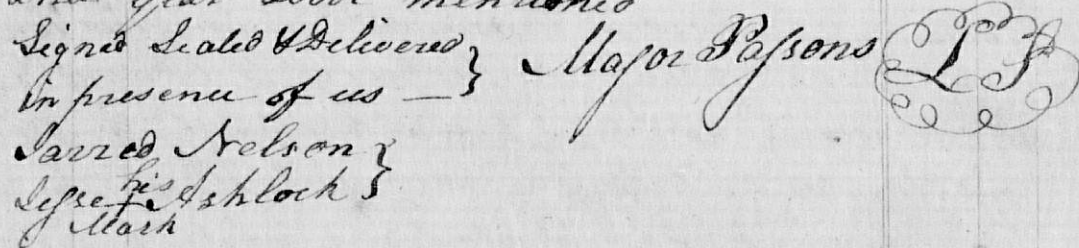 and year above mentioned
Signed Sealed & Delivered } Major Passons LS
in presence of us —
Jarred Nelson }
Jesse his + Ashlock
Mark